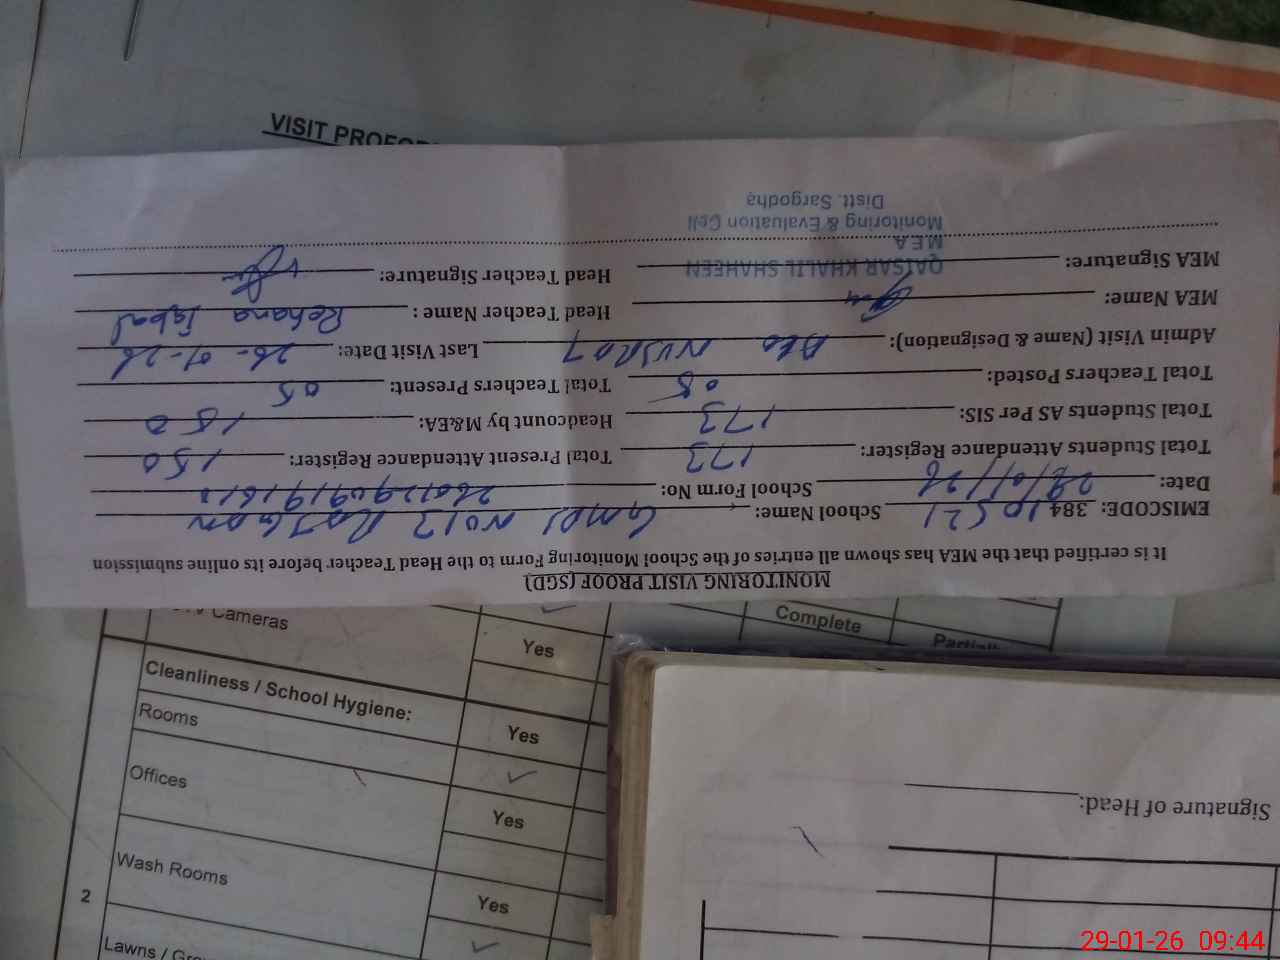 MONITORING VISIT PROOF (SGD)
It is certified that the MEA has shown all entries of the School Monitoring Form to the Head Teacher before its online submission
EMISCODE: 38410521 School Name: GMPS NO13 RajGan
Date: 29/01/26 School Form No:
Total Students Attendance Register: 173 Total Present Attendance Register: 150
Total Students AS Per SIS: 173 Headcount by M&EA: 150
Total Teachers Posted: 05 Total Teachers Present: 05
Admin Visit (Name & Designation): Last Visit Date: 26-01-26
MEA Name: Head Teacher Name : Rehana Iqbal
MEA Signature: Head Teacher Signature:
QAISAR KHALIL SHAHEEN
MEA
Monitoring & Evaluation Cell
Distt. Sargodha
VISIT
Cameras
Yes
Complete
Cleanliness / School Hygiene:
Rooms
Yes
Offices
Yes
2
Wash Rooms
Yes
Lawns /
Signature of Head:
29-01-26 09:44